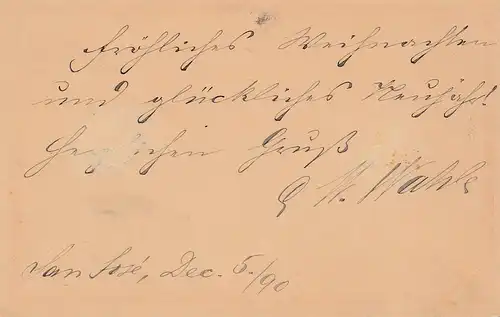 Fröhliches Weihnachten
und glückliches Neujahr!
Herzlichen Gruß
W. Wahle
San José, Dec. 5./90